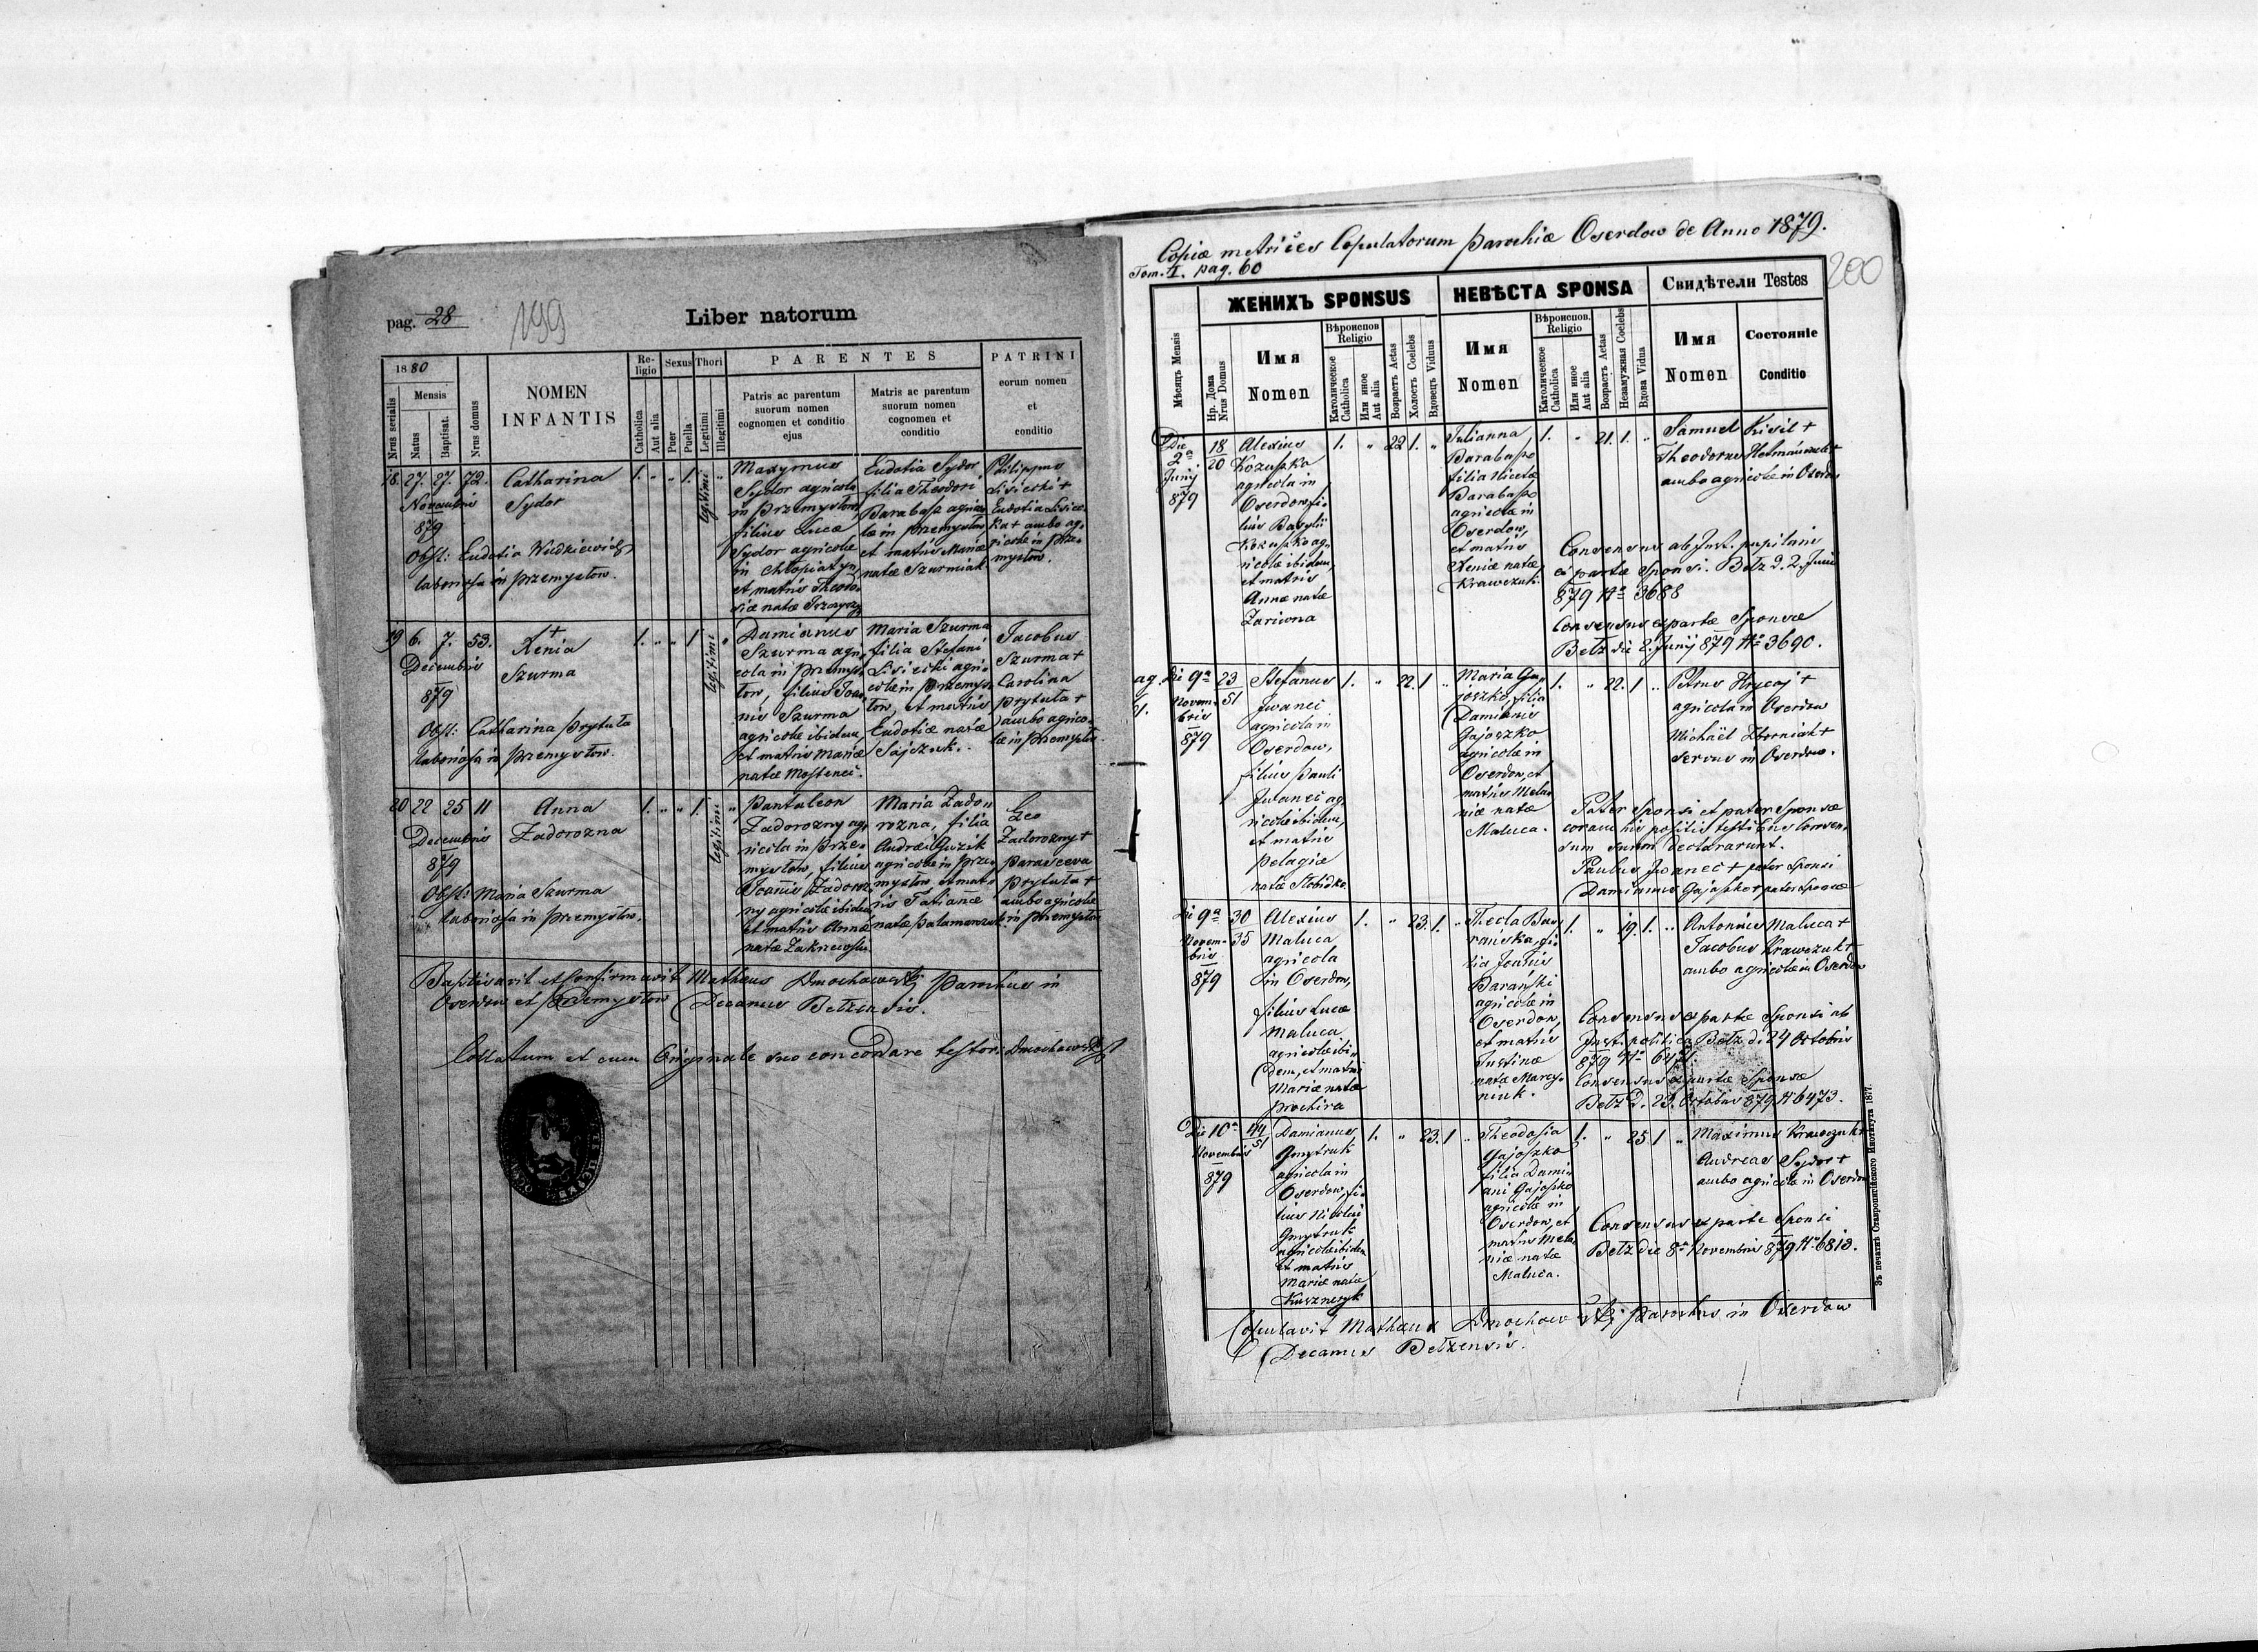 pag. 28
199
Liber natorum
1880
Mensis
Nrus serialis
Natus
Baptisat.
Nrus domus
NOMEN
INFANTIS
Re-
ligio
Catholica
Aut alia
Sexus
Puer
Puella
Thori
Legitimi
Illegitimi
PARENTES
Patris ac parentum
suorum nomen
cognomen et conditio
ejus
Matris ac parentum
suorum nomen
cognomen et
conditio
PATRINI
eorum nomen
et
conditio
18. 27. 27. 72.
Novembris
879
Catharina
Sydor
1. " " 1. legitimi "
Maxymus
Sydor agricola
in Przemysłow
filius Lucæ
Sydor agricolæ
in Chłopiatyn,
et matris Theodo-
siæ natæ
Eudotia Sydor
filia Theodori
Barabasz agrico-
læ in Przemysłow
et matris Mariæ
natæ Szurmiak.
Philippus
Lisiecki +
Eudotia Lisiec-
ka + ambo ag-
ricolæ in Prze-
mysłow.
Obst: Eudotia
laboriosa in Przemysłow.
19 6. 7. 53.
Decembris
879
+
Xenia
Szurma
1. " " 1 legitimi "
Damianus
Szurma agri-
cola in Przemys-
łow, filius Joan-
nis Szurma
agricolæ ibidem,
et matris Mariæ
natæ Mostenci.
Maria Szurma
filia Stefani
Lisiecki agri-
colæ in Przemys-
łow, et matris
Eudotiæ natæ
Sajczuk.
Jacobus
Szurma +
Carolina
Prytuła +
ambo agrico-
læ in Przemysłow.
Obst: Catharina Prytuła
laboriosa in Przemysłow.
20 22 25 11
Decembris
879
Anna
Zadorozna
1. " " 1. legitimi "
Pantaleon
Zadorozny ag-
ricola in Prze-
mysłow, filius
Joannis Zadoroz-
ny agricolæ ibidem
et matris Annæ
natæ
Maria Zado-
rozna, filia
Andreæ Guzik
agricolæ in Prze-
mysłow, et mat-
ris Tatianæ
natæ Palamarczuk.
Leo
Zadorozny +
Parasceva
Prytuła +
ambo agricolæ
in Przemysłow
Obst: Maria Szurma
laboriosa in Przemysłow.
Baptisavit et Confirmavit Matheus Dmochowski Parochus in
Oserdow et Przemysłow Decanus Bełzensis.
Collatum et cum Originale suo concordare testor: Dmochowski
Copiæ metrices Copulatorum parochiæ Oserdow de Anno 1879.
Tom. I. pag. 60
200
Мѣсяцъ Mensis
Нр. Дома
Nrus Domus
ЖЕНИХЪ SPONSUS
Имя
Nomen
Вѣроиспов
Religio
Католическое
Catholica
Или иное
Aut alia
Возрастъ Aetas
Холостъ Coelebs
Вдовецъ Viduus
НЕВѢСТА SPONSA
Имя
Nomen
Вѣроиспов.
Religio
Католическое
Catholica
Или иное
Aut alia
Возрастъ Aetas
Незамужная Coelebs
Вдова Vidua
Свидѣтели Testes
Имя
Nomen
Состояніе
Conditio
Die
2a
Junij
879
18
20
Alexius
Kozuszko
agricola in
Oserdow fi-
lius Basylii
Kozuszko ag-
ricolæ ibidem,
et matris
Annæ natæ
Zariwna
1. " 22 1. "
Julianna
Barabasz
filia Nicolai
Barabasz
agricolæ in
Oserdow,
et matris
Xeniæ natæ
Krawczuk.
1. " 21. 1. "
Samuel Kisil +
Theodorus
ambo agricolæ in Oserdow
Consensus ab Inst. pupilari
ex parte Sponsi. Bełz d. 2. Junii
879 No 3688
Consensus ex parte Sponsæ
Bełz die 2. Junij 879 No 3690.
ag.
Die 9a
Novem-
bris
879
23
51
Stefanus
Iwanec
agricola in
Oserdow,
filius Pauli
Iwanec ag-
ricolæ ibidem,
et matris
Pelagiæ
natæ Słobidko
1. " 22. 1 "
Maria Ga-
joszko, filia
Damianis
Gajoszko
agricolæ in
Oserdow, et
matris Mela-
niæ natæ
Maluca.
1. " 22. 1 "
Petrus Hrycaj +
agricola in Oserdow
Michael Zborniak +
servus in Oserdow.
Pater Sponsi et pater Sponsæ
coram his positis testibus Consen-
sum suum declararunt.
Paulus Iwanec + pater Sponsi
Damianus Gajoszko + pater Sponsæ
Die 9a
Novem-
bris
879
30
35
Alexius
Maluca
agricola
in Oserdow,
filius Lucæ
Maluca
agricolæ ibi-
dem, et matris
Mariæ natæ
Prochira
1. " 23. 1. "
Thecla Ba-
ranska, fi-
lia Joannis
Barański
agricolæ in
Oserdow,
et matris
Justinæ
natæ Marcy-
niuk.
1. " 19. 1. "
Antonius Maluca +
Jacobus Krawczuk +
ambo agricolæ in Oserdow
Consensus ex parte Sponsi ab
Inst. politica Bełz d. 24 Octobris
879 No
Consensus ex parte Sponsæ
Bełz d. 23. Octobris 879 No 6473.
Die 10a
Novembris
879
44
51
Damianus
Gmytruk
agricola in
Oserdow, fi-
lius Nicolai
Gmytruk
agricolæ ibidem
et matris
Mariæ natæ
Kuszneryk
1. " 23. 1 "
Theodosia
Gajoszko
filia Dami-
ani Gajoszko
agricolæ in
Oserdow, et
matris Mela-
niæ natæ
Maluca.
1. " 25 1 "
Maximus Krawczuk +
Andreas Sydor +
ambo agricolæ in Oserdow
Consensus ex parte Sponsi
Bełz die 8a Novembris 879 No 6813.
Copulavit Matheus Dmochowski Parochus in Oserdow
Decanus Bełzensis.
Зъ печатнѣ Ставропигійского Института 1877.